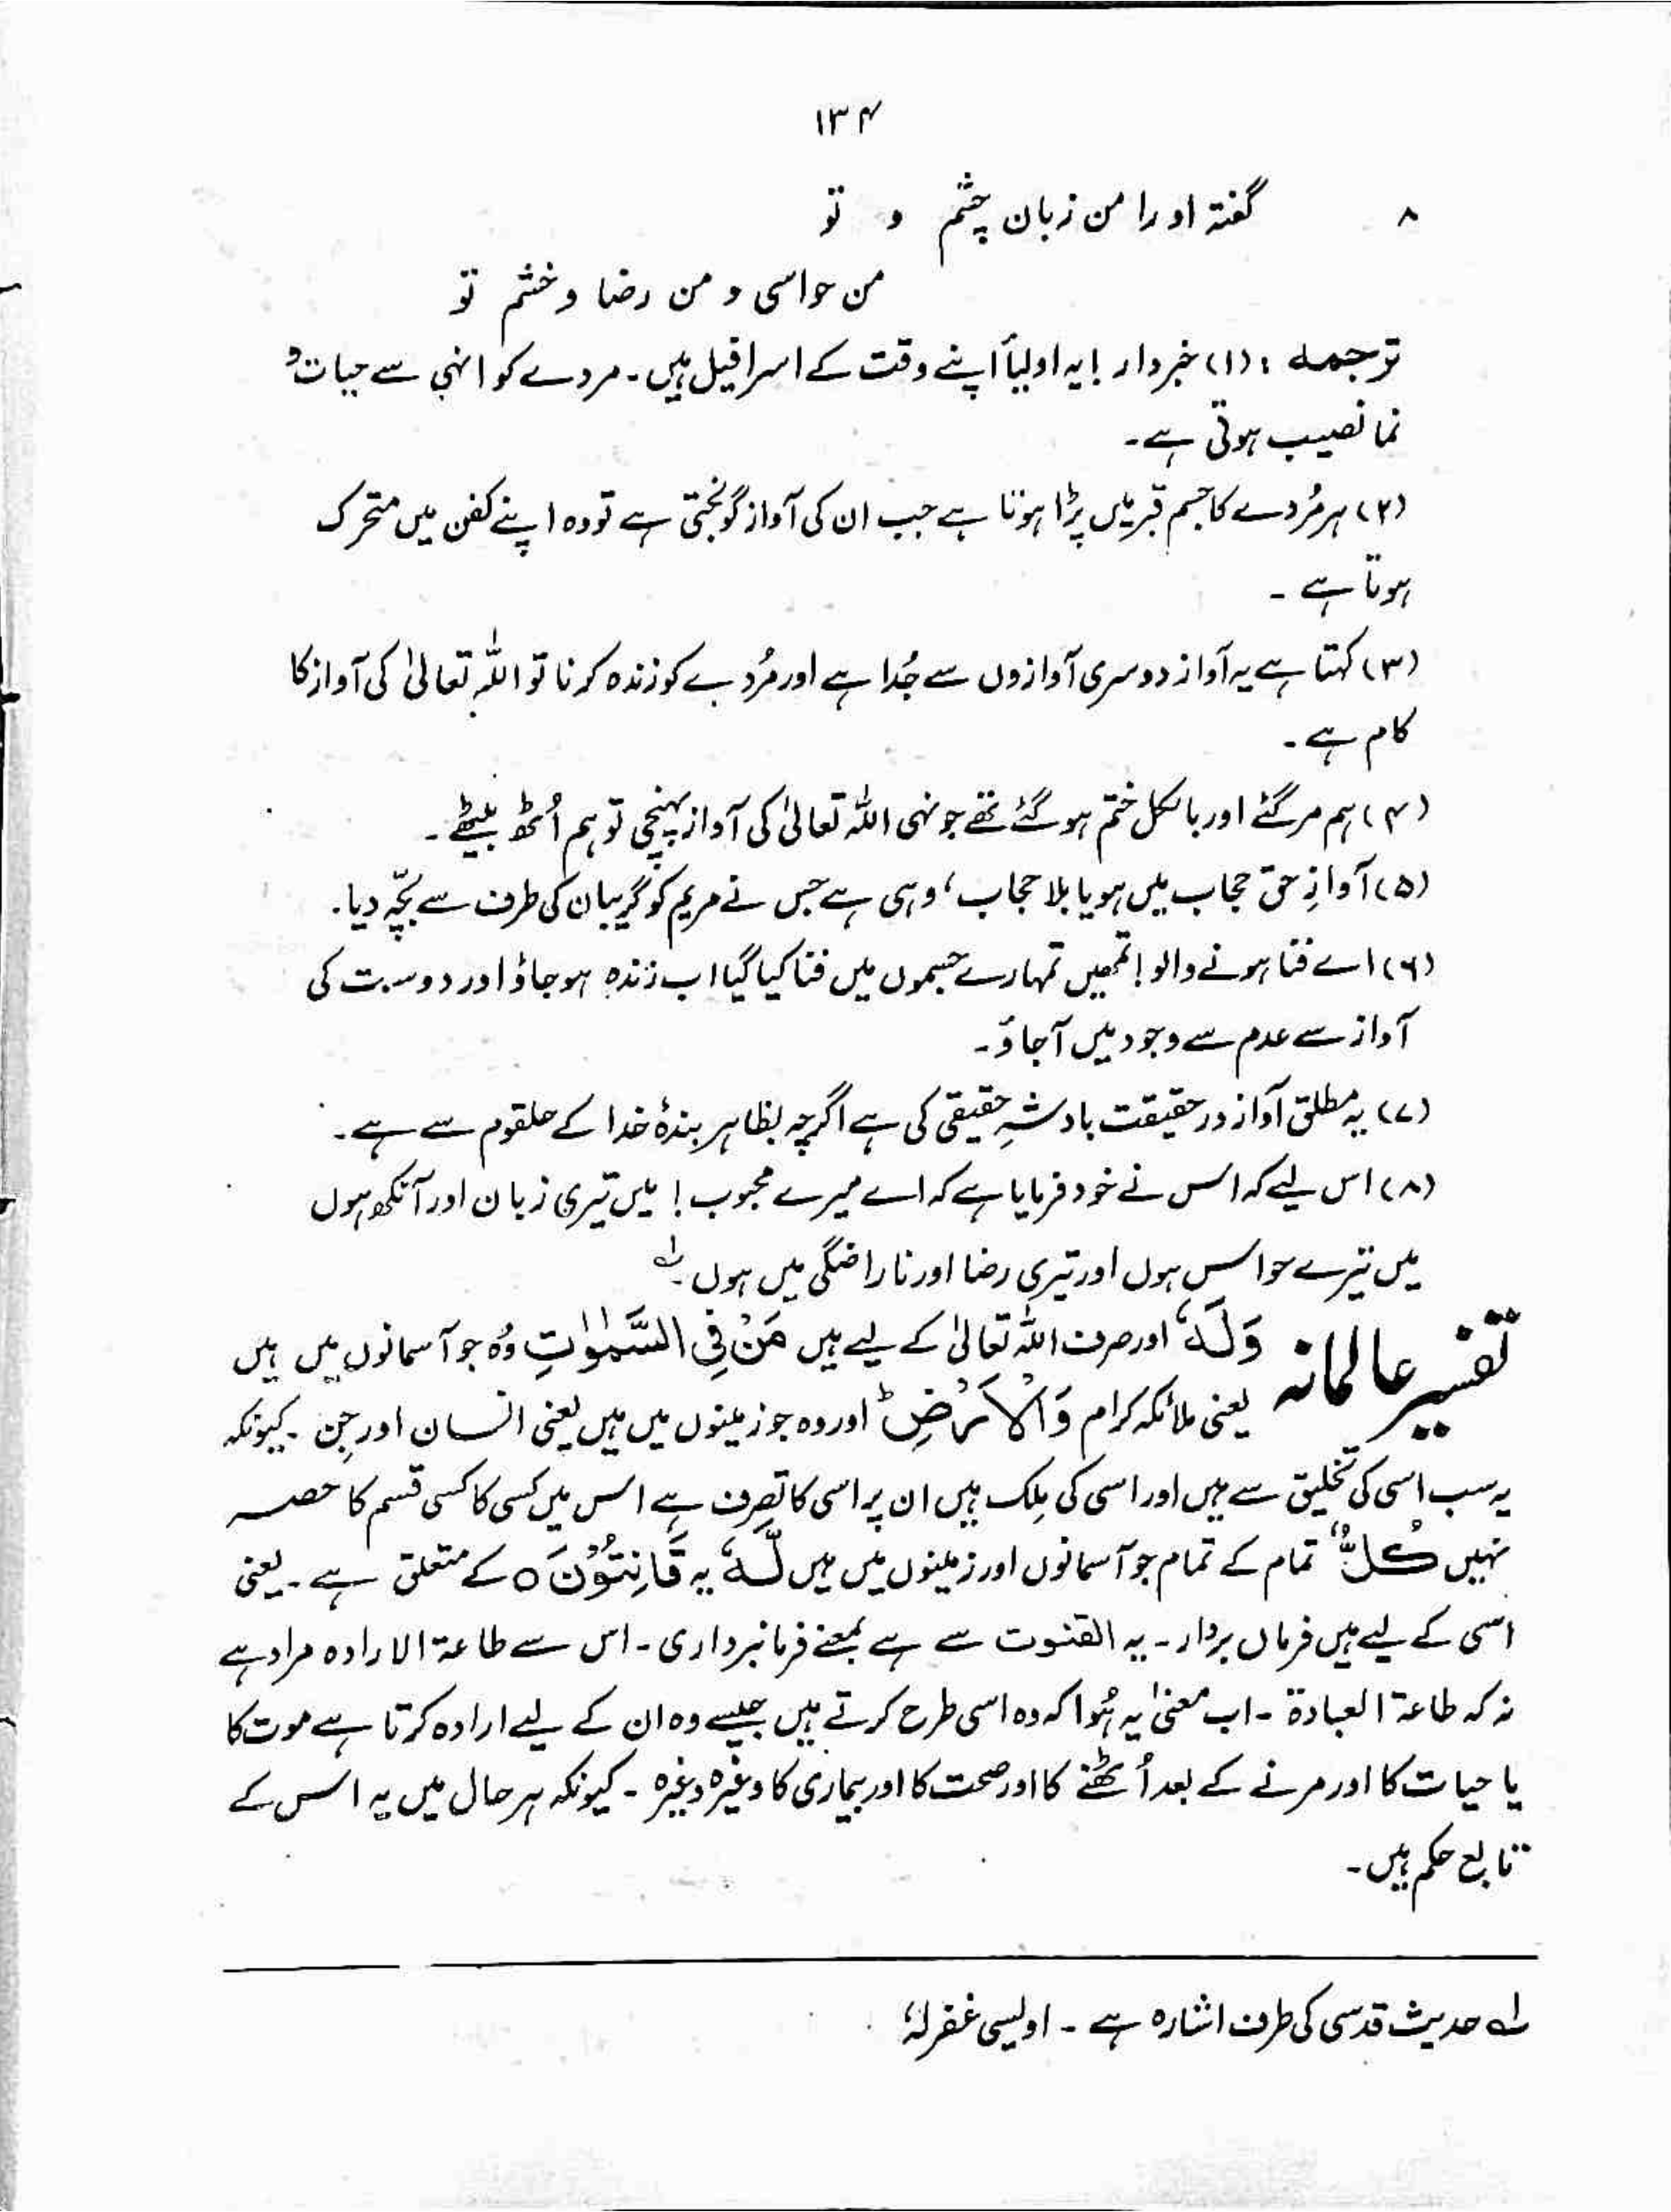 ۱۳۴
۸ گفتہ او را من زبان چشم و تو
من حواسی و من رضا و خشم تو
ترجمہ : (۱) خبردار ! یہ اولیأ اپنے وقت کے اسرافیل ہیں ۔ مردے کو انہی سے حیات و
نما نصیب ہوتی ہے ۔
(۲) ہر مُردے کا جسم قبر میں پڑا ہوتا ہے جب ان کی آواز گونجتی ہے تو وہ اپنے کفن میں متحرک
ہوتا ہے ۔
(۳) کہتا ہے یہ آواز دوسری آوازوں سے جُدا ہے اور مُردے کو زندہ کرنا تو اللہ تعالیٰ کی آواز کا
کام ہے ۔
(۴) ہم مر گئے اور بالکل ختم ہو گئے تھے جونہی اللہ تعالیٰ کی آواز پہنچی تو ہم اُٹھ بیٹھے ۔
(۵) آوازِ حق حجاب میں ہو یا بلا حجاب ، وہی ہے جس نے مریم کو گریبان کی طرف سے بچّہ دیا ۔
(۶) اے فنا ہونے والو ! تمھیں تمہارے جسموں میں فنا کیا گیا اب زندہ ہو جاؤ اور دوست کی
آواز سے عدم سے وجود میں آجاؤ ۔
(۷) یہ مطلق آواز در حقیقت بادشہِ حقیقی کی ہے اگرچہ بظاہر بندۂ خدا کے حلقوم سے ہے ۔
(۸) اس لیے کہ اس نے خود فرمایا ہے کہ اے میرے محبوب ! میں تیری زبان اور آنکھ ہوں
میں تیرے حواس ہوں اور تیری رضا اور ناراضگی میں ہوں ۔ ؎۱
تفسیر عالمانہ وَلَهٗ اور صرف اللہ تعالیٰ کے لیے ہیں مَنْ فِی السَّمٰوٰتِ وُہ جو آسمانوں میں ہیں
یعنی ملائکہ کرام وَالْاَرْضِ ؕ اور وہ جو زمینوں میں ہیں یعنی انسان اور جِن ۔ کیونکہ
یہ سب اسی کی تخلیق سے ہیں اور اسی کی مِلک ہیں ان پر اسی کا تصرف ہے اس میں کسی کا کسی قسم کا حصہ
نہیں كُلٌّ تمام کے تمام جو آسمانوں اور زمینوں میں ہیں لَّهٗ یہ قَانِتُوْنَ ○ کے متعلق ہے ۔ یعنی
اسی کے لیے ہیں فرماں بردار ۔ یہ القنوت سے ہے بمعنے فرمانبرداری ۔ اس سے طاعۃ الارادہ مراد ہے
نہ کہ طاعۃ العبادۃ ۔ اب معنیٰ یہ ہُوا کہ وہ اسی طرح کرتے ہیں جیسے وہ ان کے لیے ارادہ کرتا ہے موت کا
یا حیات کا اور مرنے کے بعد اُٹھنے کا اور صحت کا اور بیماری کا وغیرہ وغیرہ ۔ کیونکہ ہر حال میں یہ اس کے
تابع حکم ہیں ۔
؎۱ حدیث قدسی کی طرف اشارہ ہے ۔ اویسی غفرلہٗ